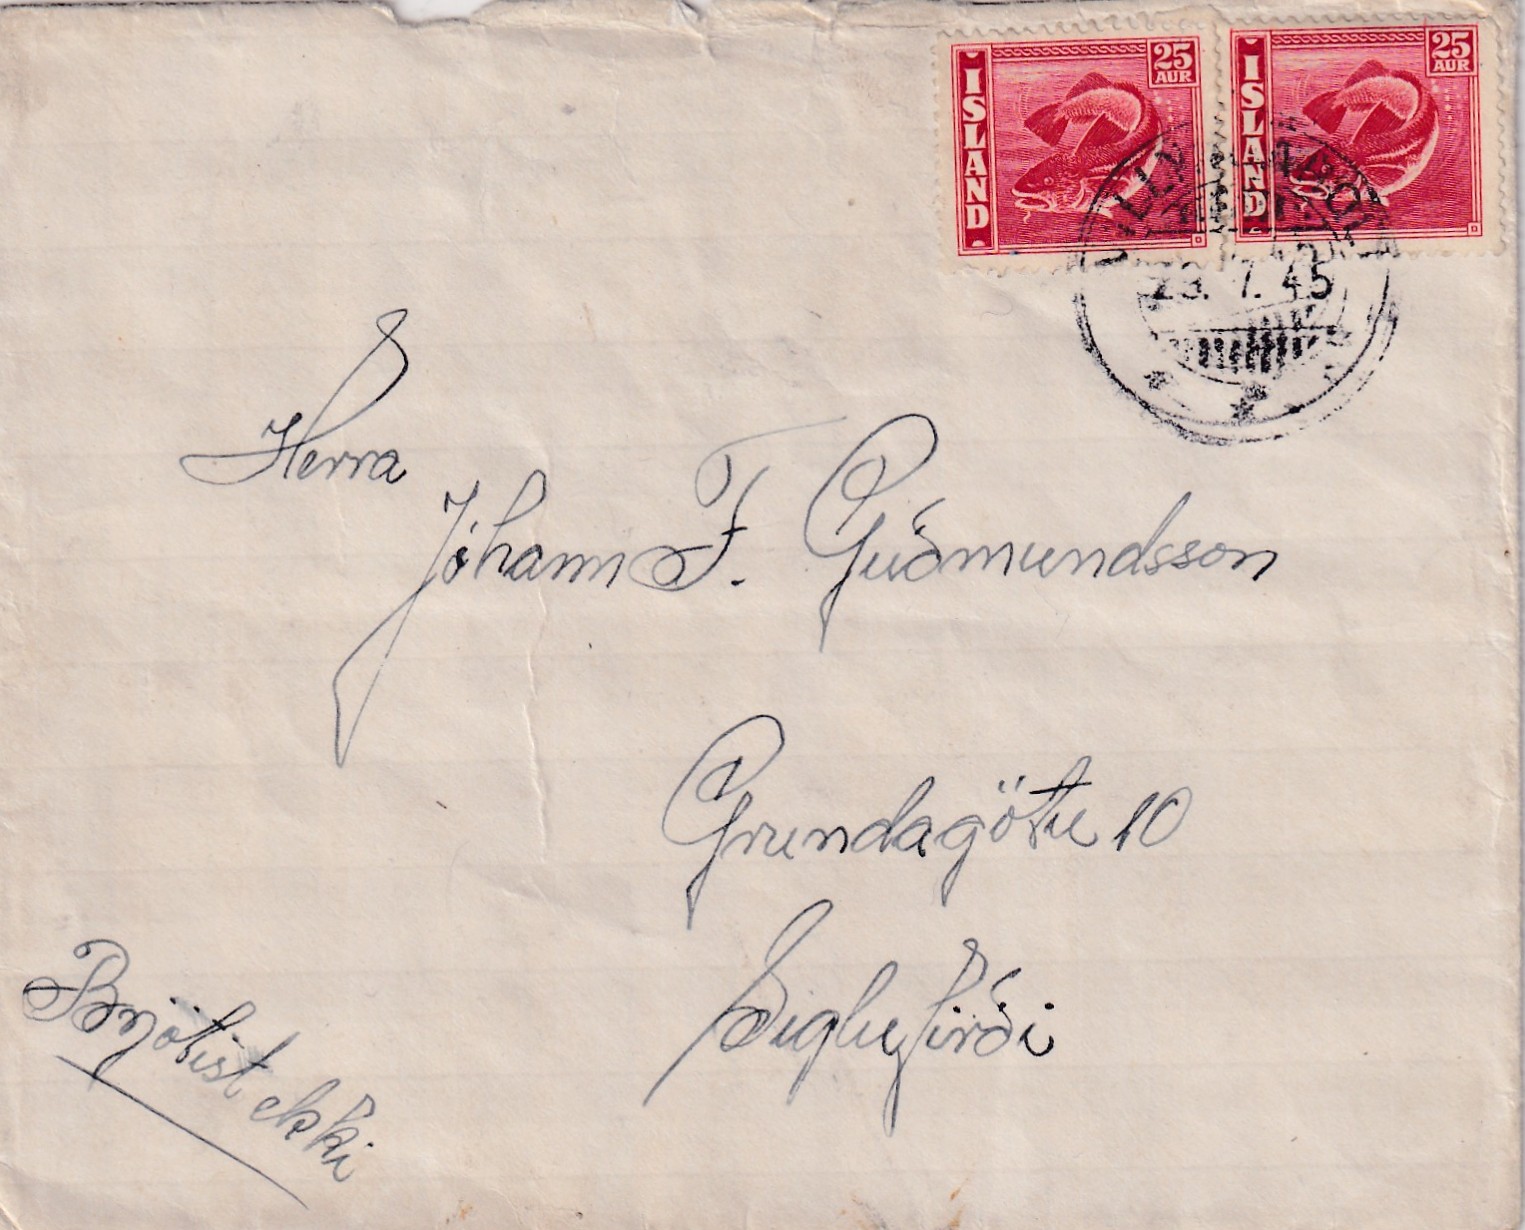 ÍSLAND 25 AUR
ÍSLAND 25 AUR
23. 7. 45
Herra
Jóhann F. Guðmundsson
Grundagötu 10
Siglufirði
Brjótist ekki